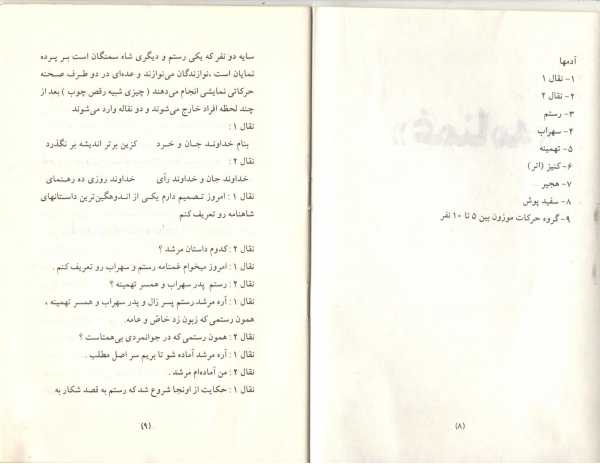 آدمها
۱- نقال ۱
۲- نقال ۲
۳- رستم
۴- سهراب
۵- تهمینه
۶- کنیز (اتر)
۷- هجیر
۸- سفید پوش
۹- گروه حرکات موزون بین ۵ تا ۱۰ نفر
(۸)
سایه دو نفر که یکی رستم و دیگری شاه سمنگان است بر پرده
نمایان است ،نوازندگان می‌نوازند و عده‌ای در دو طرف صحنه
حرکاتی نمایشی انجام می‌دهند ( چیزی شبیه رقص چوب ) بعد از
چند لحظه افراد خارج می‌شوند و دو نقاله وارد می‌شوند
نقال ۱ :
بنام خداوند جان و خرد کزین برتر اندیشه بر نگذرد
نقال ۲ :
خداوند جان و خداوند رأی خداوند روزی ده رهنمای
نقال ۱ : امروز تصمیم دارم یکی از اندوهگین‌ترین داستانهای
شاهنامه رو تعریف کنم
نقال ۲ :کدوم داستان مرشد ؟
نقال ۱ : امروز میخوام غمنامه رستم و سهراب رو تعریف کنم .
نقال ۲ : رستم پدر سهراب و همسر تهمینه ؟
نقال ۱ : آره مرشد رستم پسر زال و پدر سهراب و همسر تهمینه ،
همون رستمی که زبون زد خاص و عامه .
نقال ۲ : همون رستمی که در جوانمردی بی‌همتاست ؟
نقال ۱ : آره مرشد آماده شو تا بریم سر اصل مطلب .
نقال ۲ : من آماده‌ام مرشد .
نقال ۱ : حکایت از اونجا شروع شد که رستم به قصد شکار به
(۹)